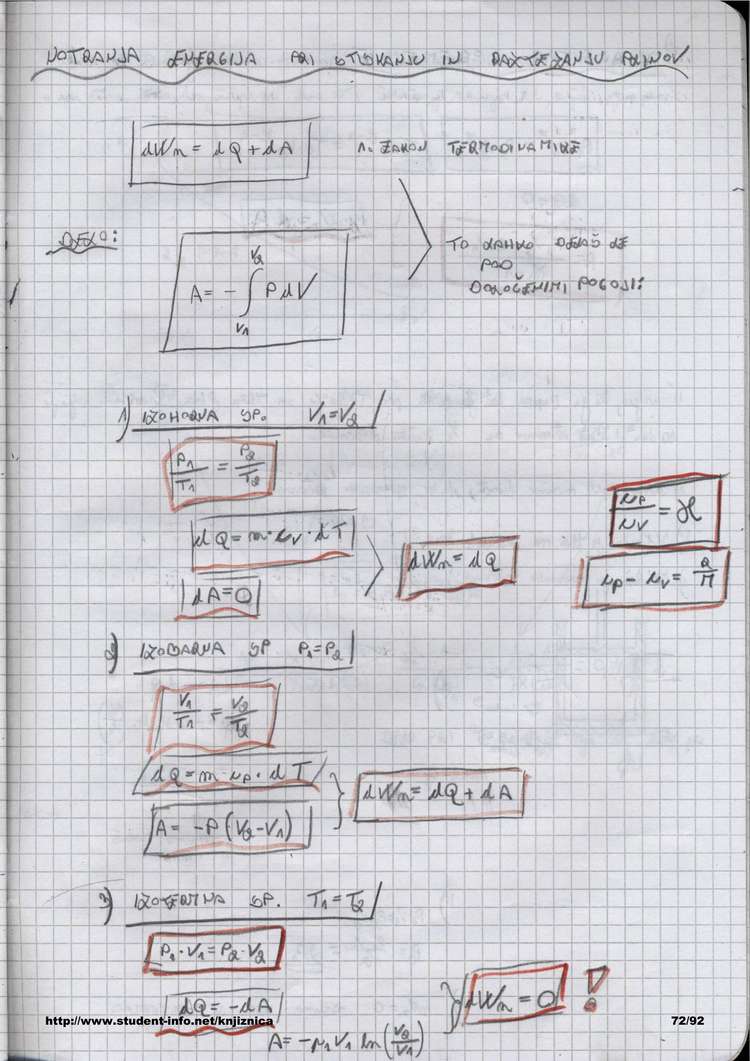 NOTRANJA ENERGIJA PRI STISKANJU IN RAZTEZANJU PLINOV.
dWn = dQ + dA
1. ZAKON TERMODINAMIKE
DELO:
A = - ∫_{V1}^{V2} P dV
TO LAHKO DELAŠ LE
POD
DOLOČENIMI POGOJI:
1) IZOHORNA SP. V1 = V2
P1/T1 = P2/T2
dQ = m · cv · dT
dA = 0
dWn = dQ
cp/cv = ϰ
cp - cv = R/M
2) IZOBARNA SP. P1 = P2
V1/T1 = V2/T2
dQ = m · cp · dT
A = -P (V2 - V1)
dWn = dQ + dA
3) IZOTERMNA SP. T1 = T2
P1 · V1 = P2 · V2
dQ = -dA
A = -p1 V1 ln (V2/V1)
dWn = 0 !
http://www.student-info.net/knjiznica
72/92